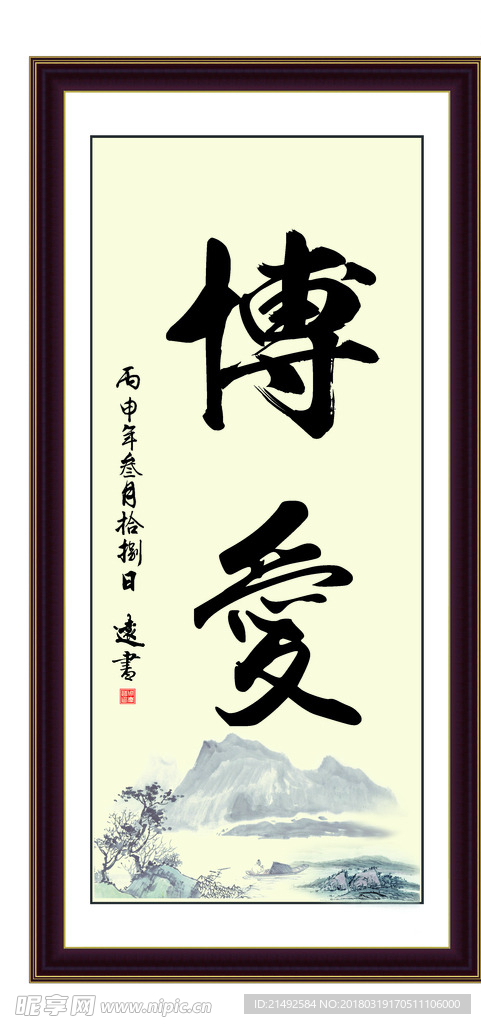 博愛
丙申年叁月拾捌日 遠書
昵享网 www.nipic.cn
ID:21492584 NO:20180319170511106000